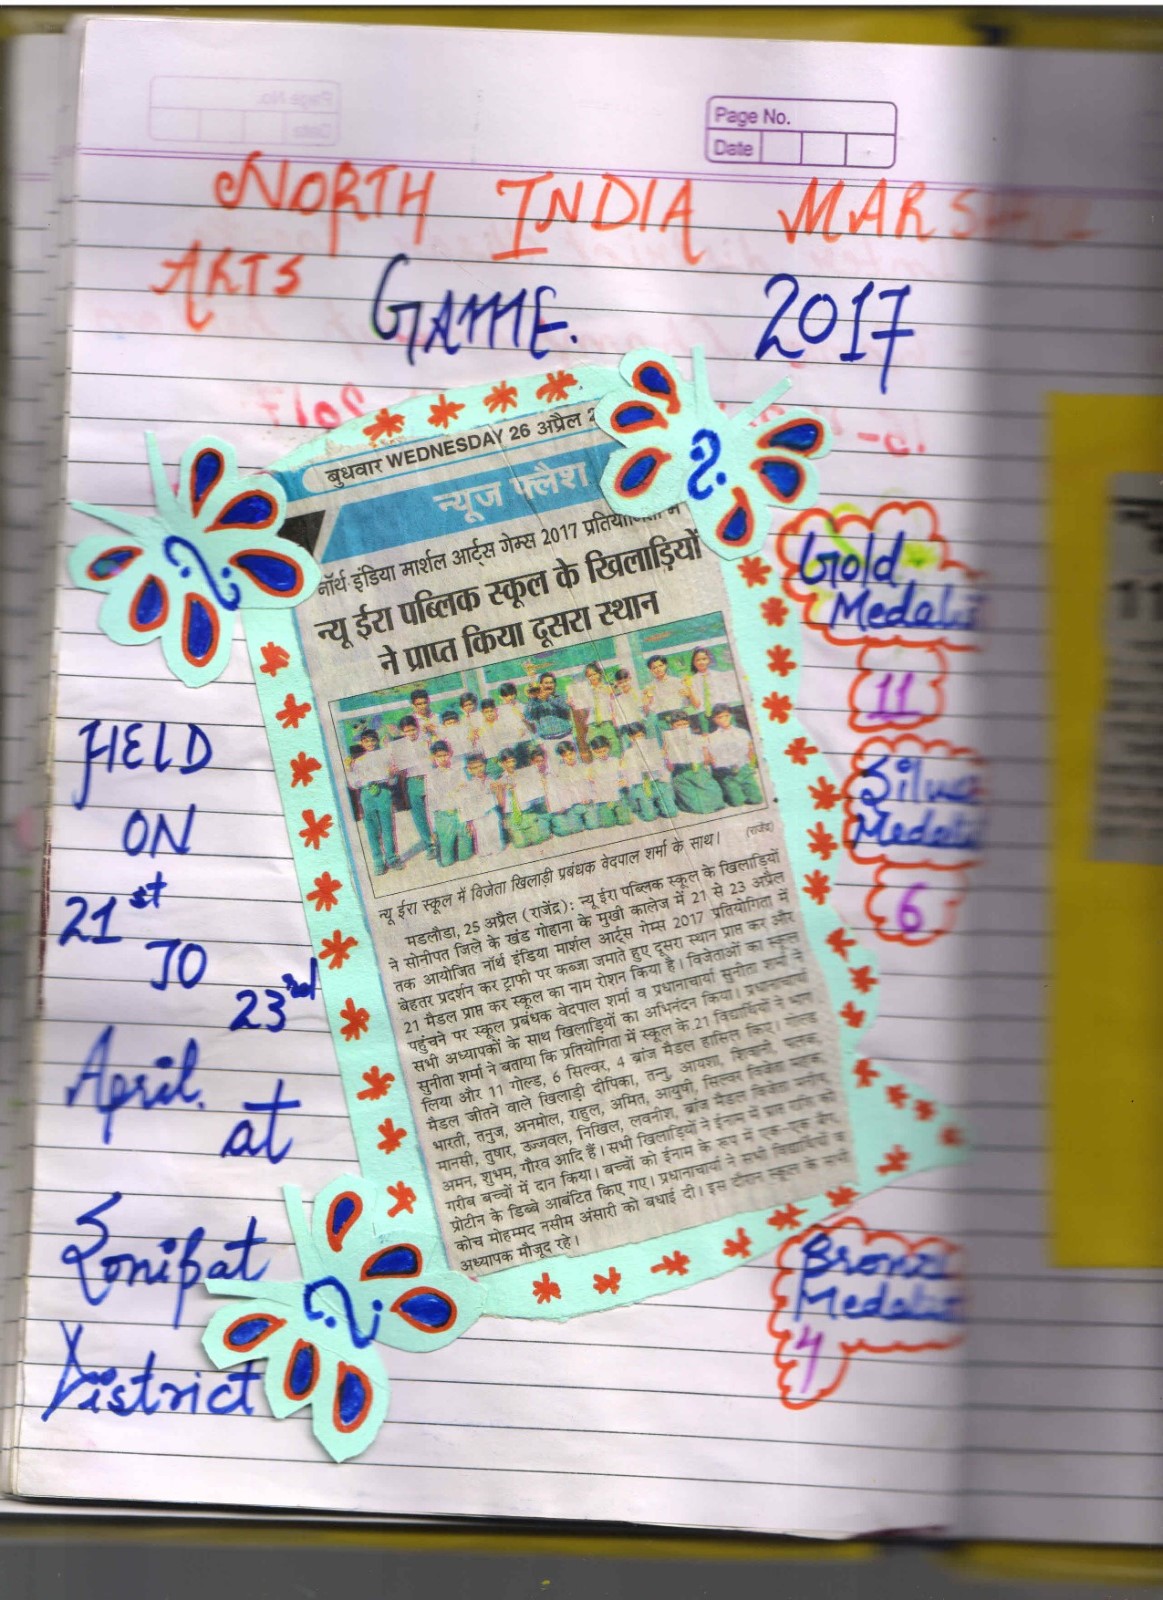 Page No.
Date
NORTH INDIA
ARTS GAME. 2017
बुधवार WEDNESDAY 26 अप्रैल
न्यूज फ्लैश
नॉर्थ इंडिया मार्शल आर्ट्स गेम्स 2017 प्रतियोगिता में
न्यू ईरा पब्लिक स्कूल के खिलाड़ियों
ने प्राप्त किया दूसरा स्थान
न्यू ईरा स्कूल में विजेता खिलाड़ी प्रबंधक वेदपाल शर्मा के साथ। (राजेंद्र)
मडलौडा, 25 अप्रैल (राजेंद्र): न्यू ईरा पब्लिक स्कूल के खिलाड़ियों
ने सोनीपत जिले के खंड गोहाना के मुखी कालेज में 21 से 23 अप्रैल
तक आयोजित नॉर्थ इंडिया मार्शल आर्ट्स गेम्स 2017 प्रतियोगिता में
बेहतर प्रदर्शन कर ट्राफी पर कब्जा जमाते हुए दूसरा स्थान प्राप्त कर और
21 मैडल प्राप्त कर स्कूल का नाम रोशन किया है। विजेताओं का स्कूल
पहुंचने पर स्कूल प्रबंधक वेदपाल शर्मा व प्रधानाचार्या सुनीता शर्मा ने
सभी अध्यापकों के साथ खिलाड़ियों का अभिनंदन किया। प्रधानाचार्या
सुनीता शर्मा ने बताया कि प्रतियोगिता में स्कूल के 21 विद्यार्थियों ने भाग
लिया और 11 गोल्ड, 6 सिल्वर, 4 ब्रांज मैडल हासिल किए। गोल्ड
मैडल जीतने वाले खिलाड़ी दीपिका, तन्नु, आयशा, शिवानी, पलक,
भारती, तनुज, अनमोल, राहुल, अमित, आयुषी, सिल्वर विजेता
मानसी, तुषार, उज्जवल, निखिल, लवनीश, ब्रांज मैडल विजेता
अमन, शुभम, गौरव आदि हैं। सभी खिलाड़ियों ने ईनाम में प्राप्त राशि को
गरीब बच्चों में दान किया। बच्चों को ईनाम के रूप में एक-एक बैग,
प्रोटीन के डिब्बे आबंटित किए गए। प्रधानाचार्या ने सभी विद्यार्थियों व
कोच मोहम्मद नसीम अंसारी को बधाई दी। इस दौरान स्कूल के सभी
अध्यापक मौजूद रहे।
HELD
ON
21st
TO
23rd
April.
at
Sonipat
District
Gold
11
6
4